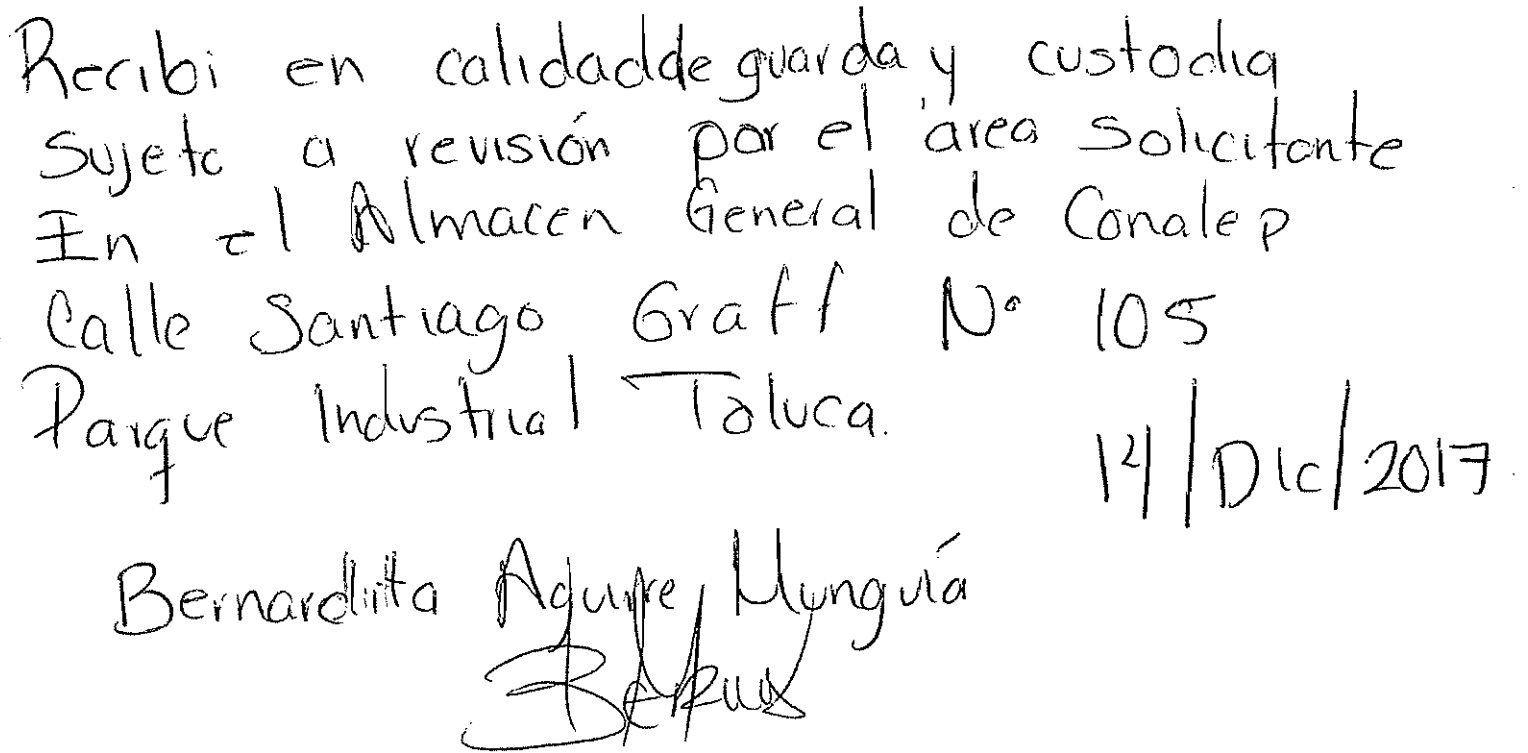 Recibi en calidad de guarda y custodia
Sujeto a revisión por el área Solicitante
En el Almacen General de Conalep
Calle Santiago Graff N° 105
Parque Industrial Toluca.
14/Dic/2017
Bernardita Aguirre Munguía